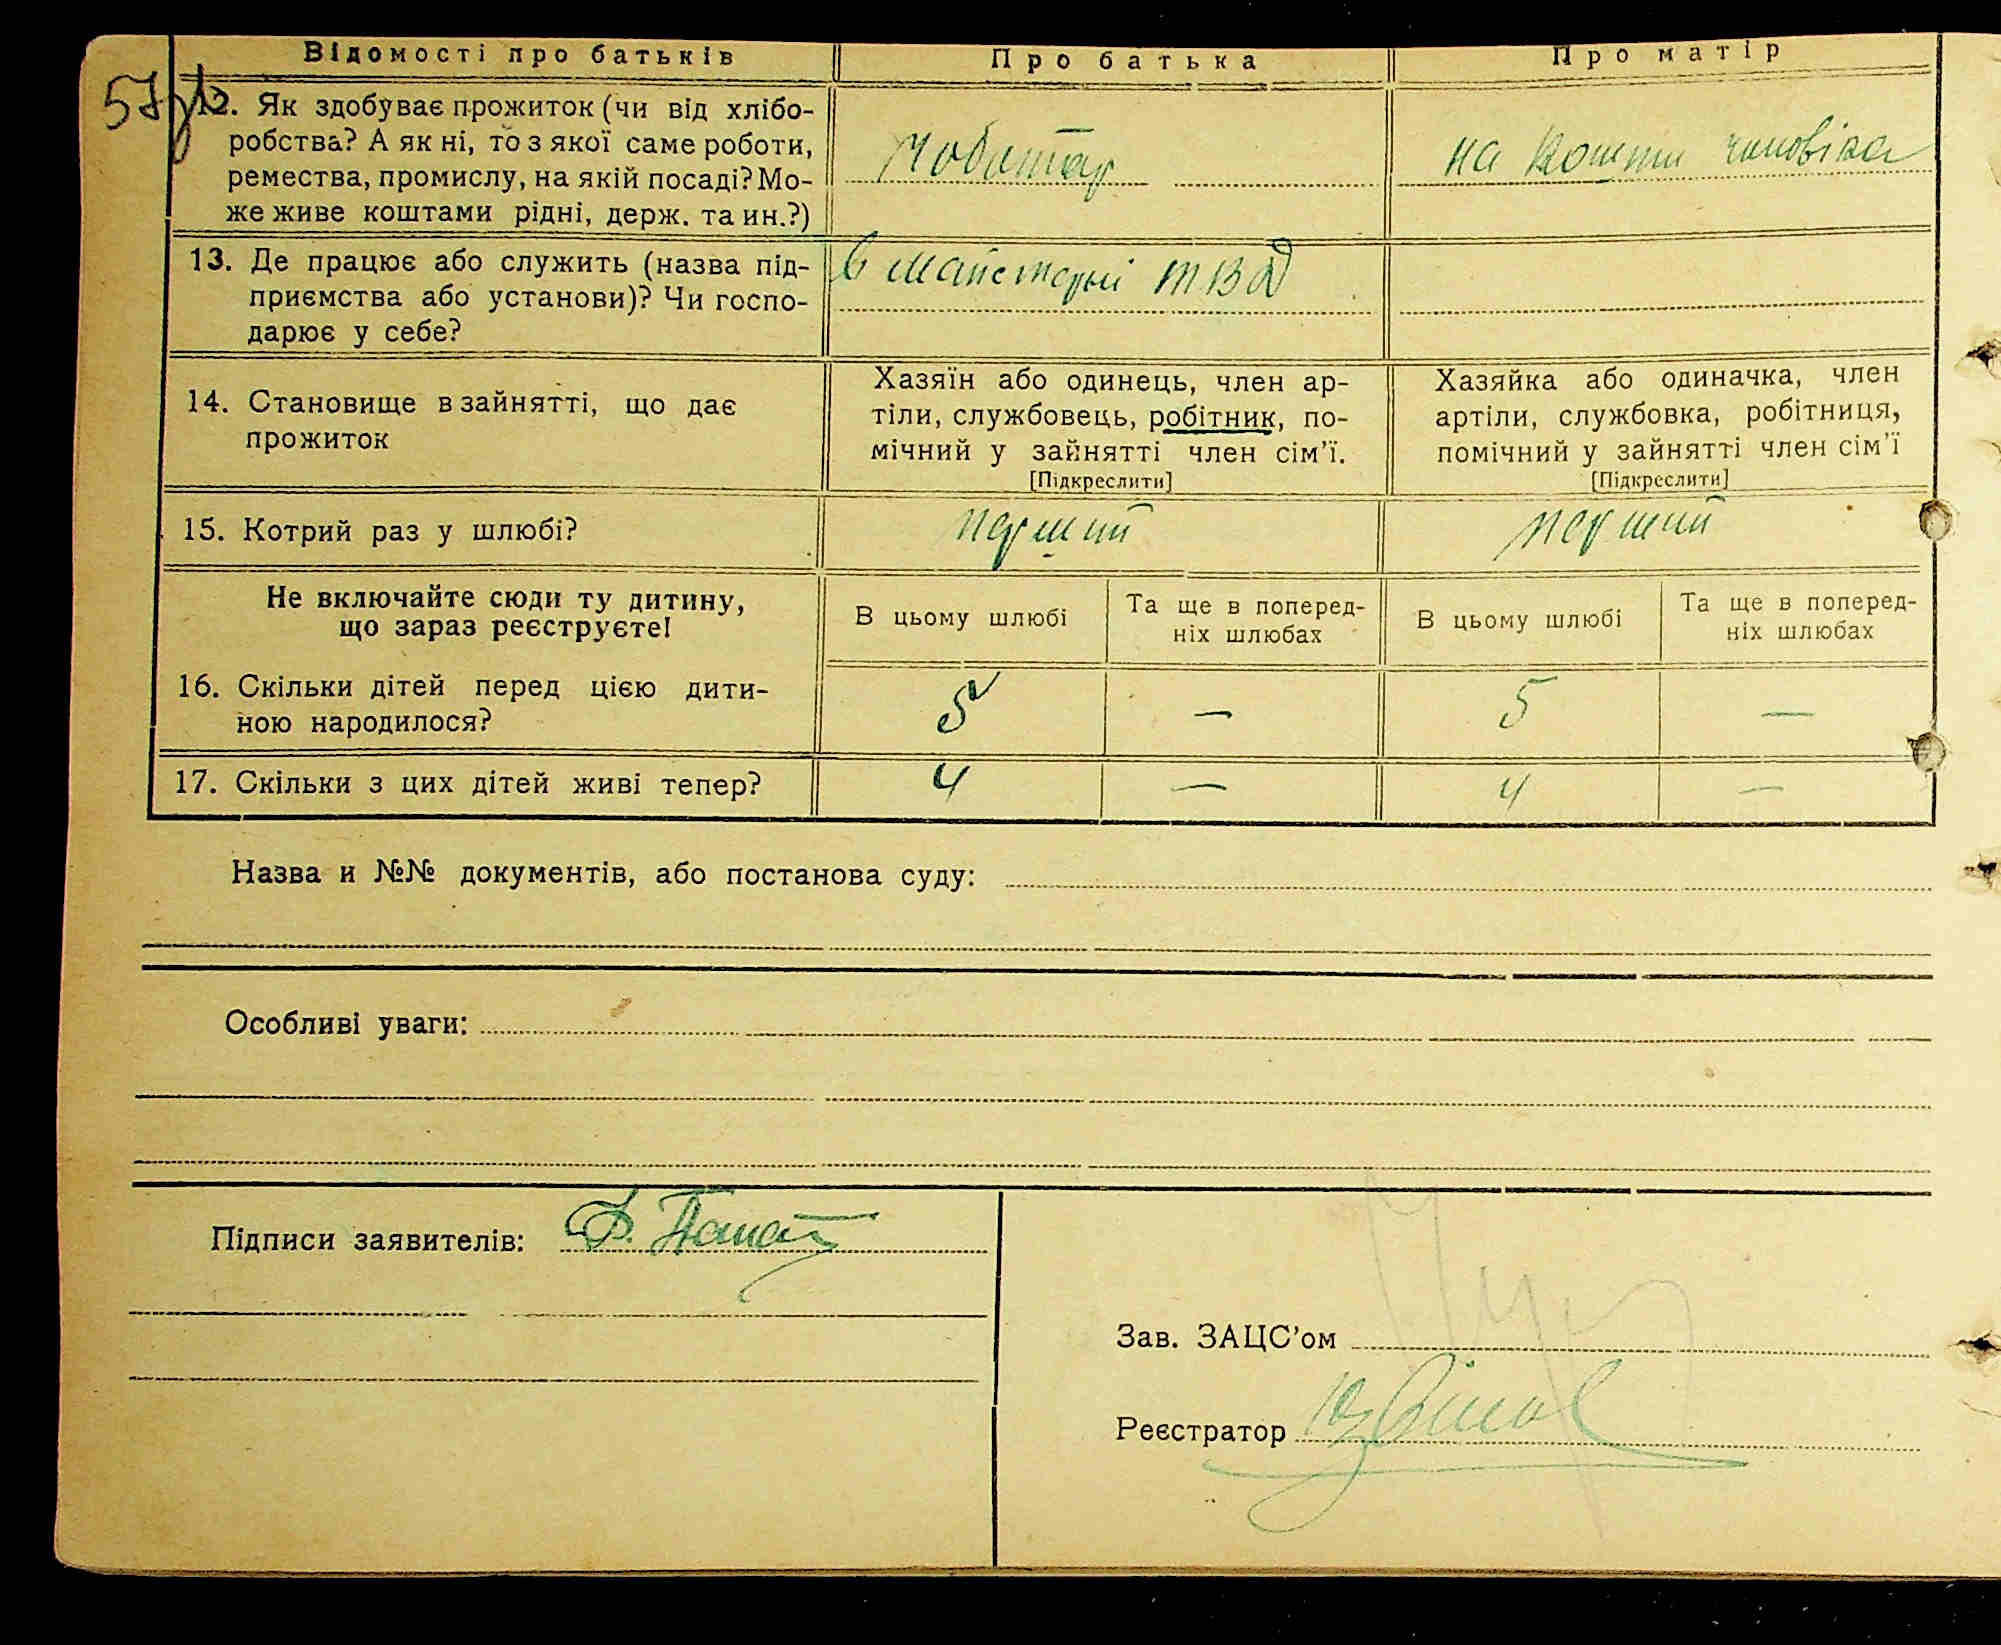 Відомості про батьків Про батька Про матір
12. Як здобуває прожиток (чи від хлібо-
робства? А як ні, то з якої саме роботи,
ремества, промислу, на якій посаді? Мо-
же живе коштами рідні, держ. та ин.?)
Чоботар
на кошти чоловіка
13. Де працює або служить (назва під-
приємства або установи)? Чи госпо-
дарює у себе?
в майстерні
14. Становище в зайнятті, що дає
прожиток
Хазяїн або одинець, член ар-
тіли, службовець, робітник, по-
мічний у зайнятті член сім'ї.
[Підкреслити]
Хазяйка або одиначка, член
артіли, службовка, робітниця,
помічний у зайнятті член сім'ї
[Підкреслити]
15. Котрий раз у шлюбі?
перший
перший
Не включайте сюди ту дитину,
що зараз реєструєте!
В цьому шлюбі
Та ще в поперед-
ніх шлюбах
В цьому шлюбі
Та ще в поперед-
ніх шлюбах
16. Скільки дітей перед цією дити-
ною народилося?
5 — 5 —
17. Скільки з цих дітей живі тепер? 4 — 4 —
Назва и №№ документів, або постанова суду:
Особливі уваги:
Підписи заявителів:
Зав. ЗАЦС'ом
Реєстратор